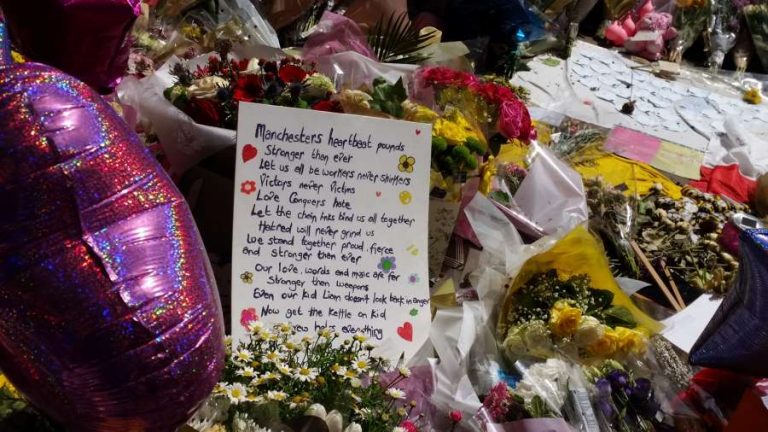 Manchesters heartbeat pounds
Stronger than ever
Let us all be workers never shufflers
Victors never Victims
Love Conquers hate
Let the chain links bind us all together
Hatred will never grind us
We stand together proud, fierce
and stronger then ever
Our love, words and music are
Stronger than weapons
Even our kid Liam doesn't look back in anger
Now get the kettle on kid
brew helps everything